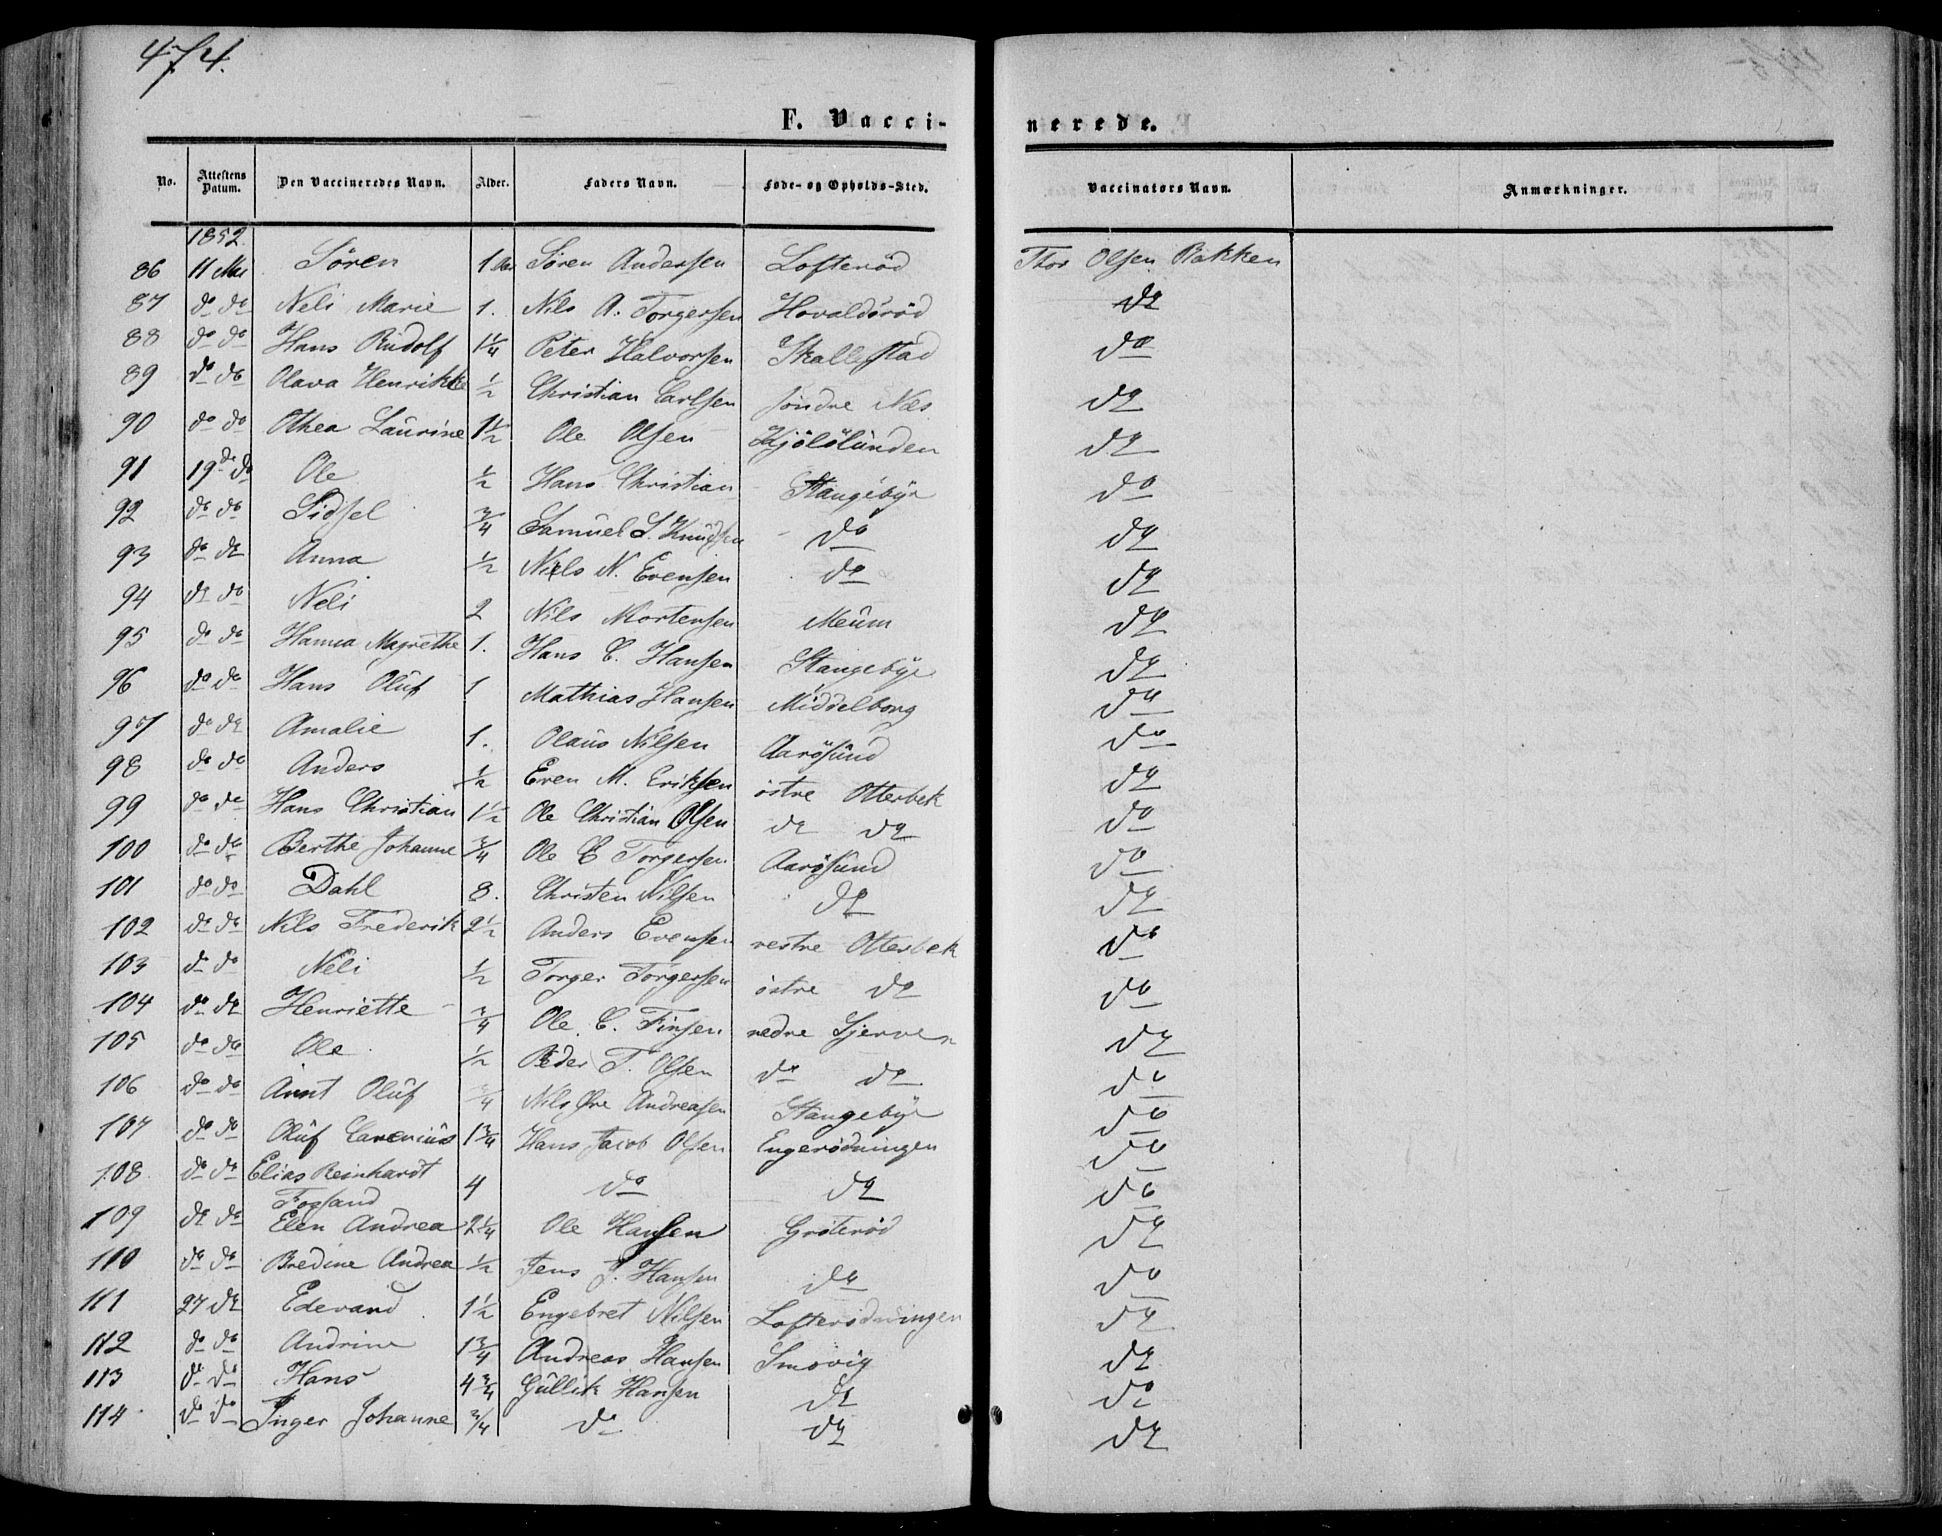 474.
F. Vaccinerede.
No. Attestens Datum. Den Vaccineredes Navn. Alder. Faders Navn. Føde- og Opholds-Sted. Vaccinators Navn. Anmærkninger.
1852.
86 11 Mai Sören 1 Aar Sören Andersen Lofteröd Thor Olsen Bakken
87 do do Neli Marie 1. Nils A. Torgersen Hovaldsröd do
88 do do Hans Rudolf 1 1/4 Peter Halvorsen Skallestad do
89 do do Olava Henrikke 1/2 Christian Carlsen söndre Næs do
90 do do Othea Laurine 1 1/2 Ole Olsen Kjölölunden do
91 19de do Ole 1/2 Hans Christian Stangebÿe do
92 do do Sidsel 3/4 Samuel S. Knudsen do do
93 do do Anna 1/2 Niels N. Evensen do do
94 do do Neli 2 Nils Mortensen Meum do
95 do do Hanna Magrethe 1. Hans C. Hansen Stangebÿe do
96 do do Hans Oluf 1 Mathias Hansen Middelborg do
97 do do Amalie 1. Olaus Nilsen Aarösund do
98 do do Anders 1/2 Even M. Eriksen östre Otterbek do
99 do do Hans Christian 1 1/2 Ole Christian Olsen do do do
100 do do Berthe Johanne 3/4 Ole C Torgersen Aarösund do
101 do do Dahl 8. Christen Nilsen do do
102 do do Nils Frederik 2 1/2 Anders Evensen vestre Otterbek do
103 do do Neli 1/2 Torger Torgersen östre do do
104 do do Henriette 3/4 Ole C. Finsen nedre Gjerven do
105 do do Ole 1/2 Peder T. Olsen do do do
106 do do Arnt Oluf 3/4 Nils Øre Andreasen Stangebÿe do
107 do do Oluf Carenius 1 3/4 Hans Jacob Olsen Engerödningen do
108 do do Elias Reinhardt Fossand 4 do do do
109 do do Elen Andrea 2 1/4 Ole Hansen Gröteröd do
110 do do Bredine Andrea 1/2 Jens J. Hansen do do
111 27 do Edevard 1 1/2 Engebret Nilsen Lofterödningen do
112 do do Andrine 1 3/4 Andreas Hansen Smövig do
113 do do Hans 4 3/4 Gullik Hansen do do
114 do do Inger Johanne 3/4 do do do